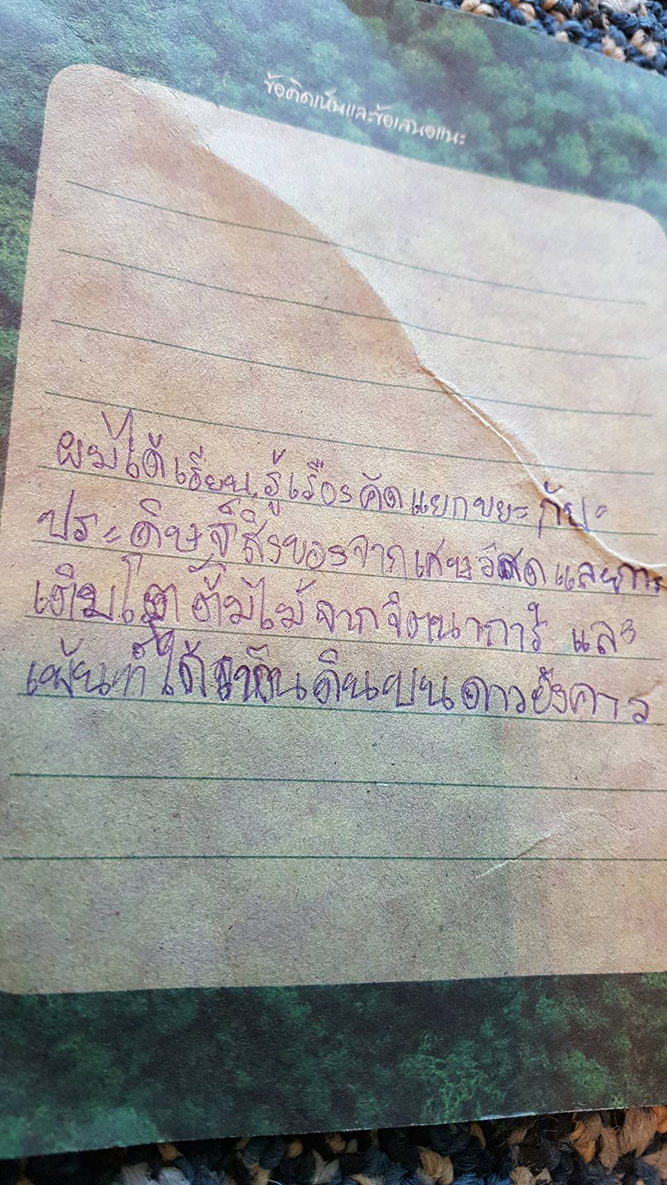 ข้อคิดเห็นและข้อเสนอแนะ
ผมได้เรียนรู้เรื่องคัดแยกขยะ กับ
ประดิษฐ์สิ่งของจากเศษวัสดุ และการ
เติบโต ต้นไม้ จากจิตนาการ์ และ
ได้ เห็น ดินบนดาวอังคาร